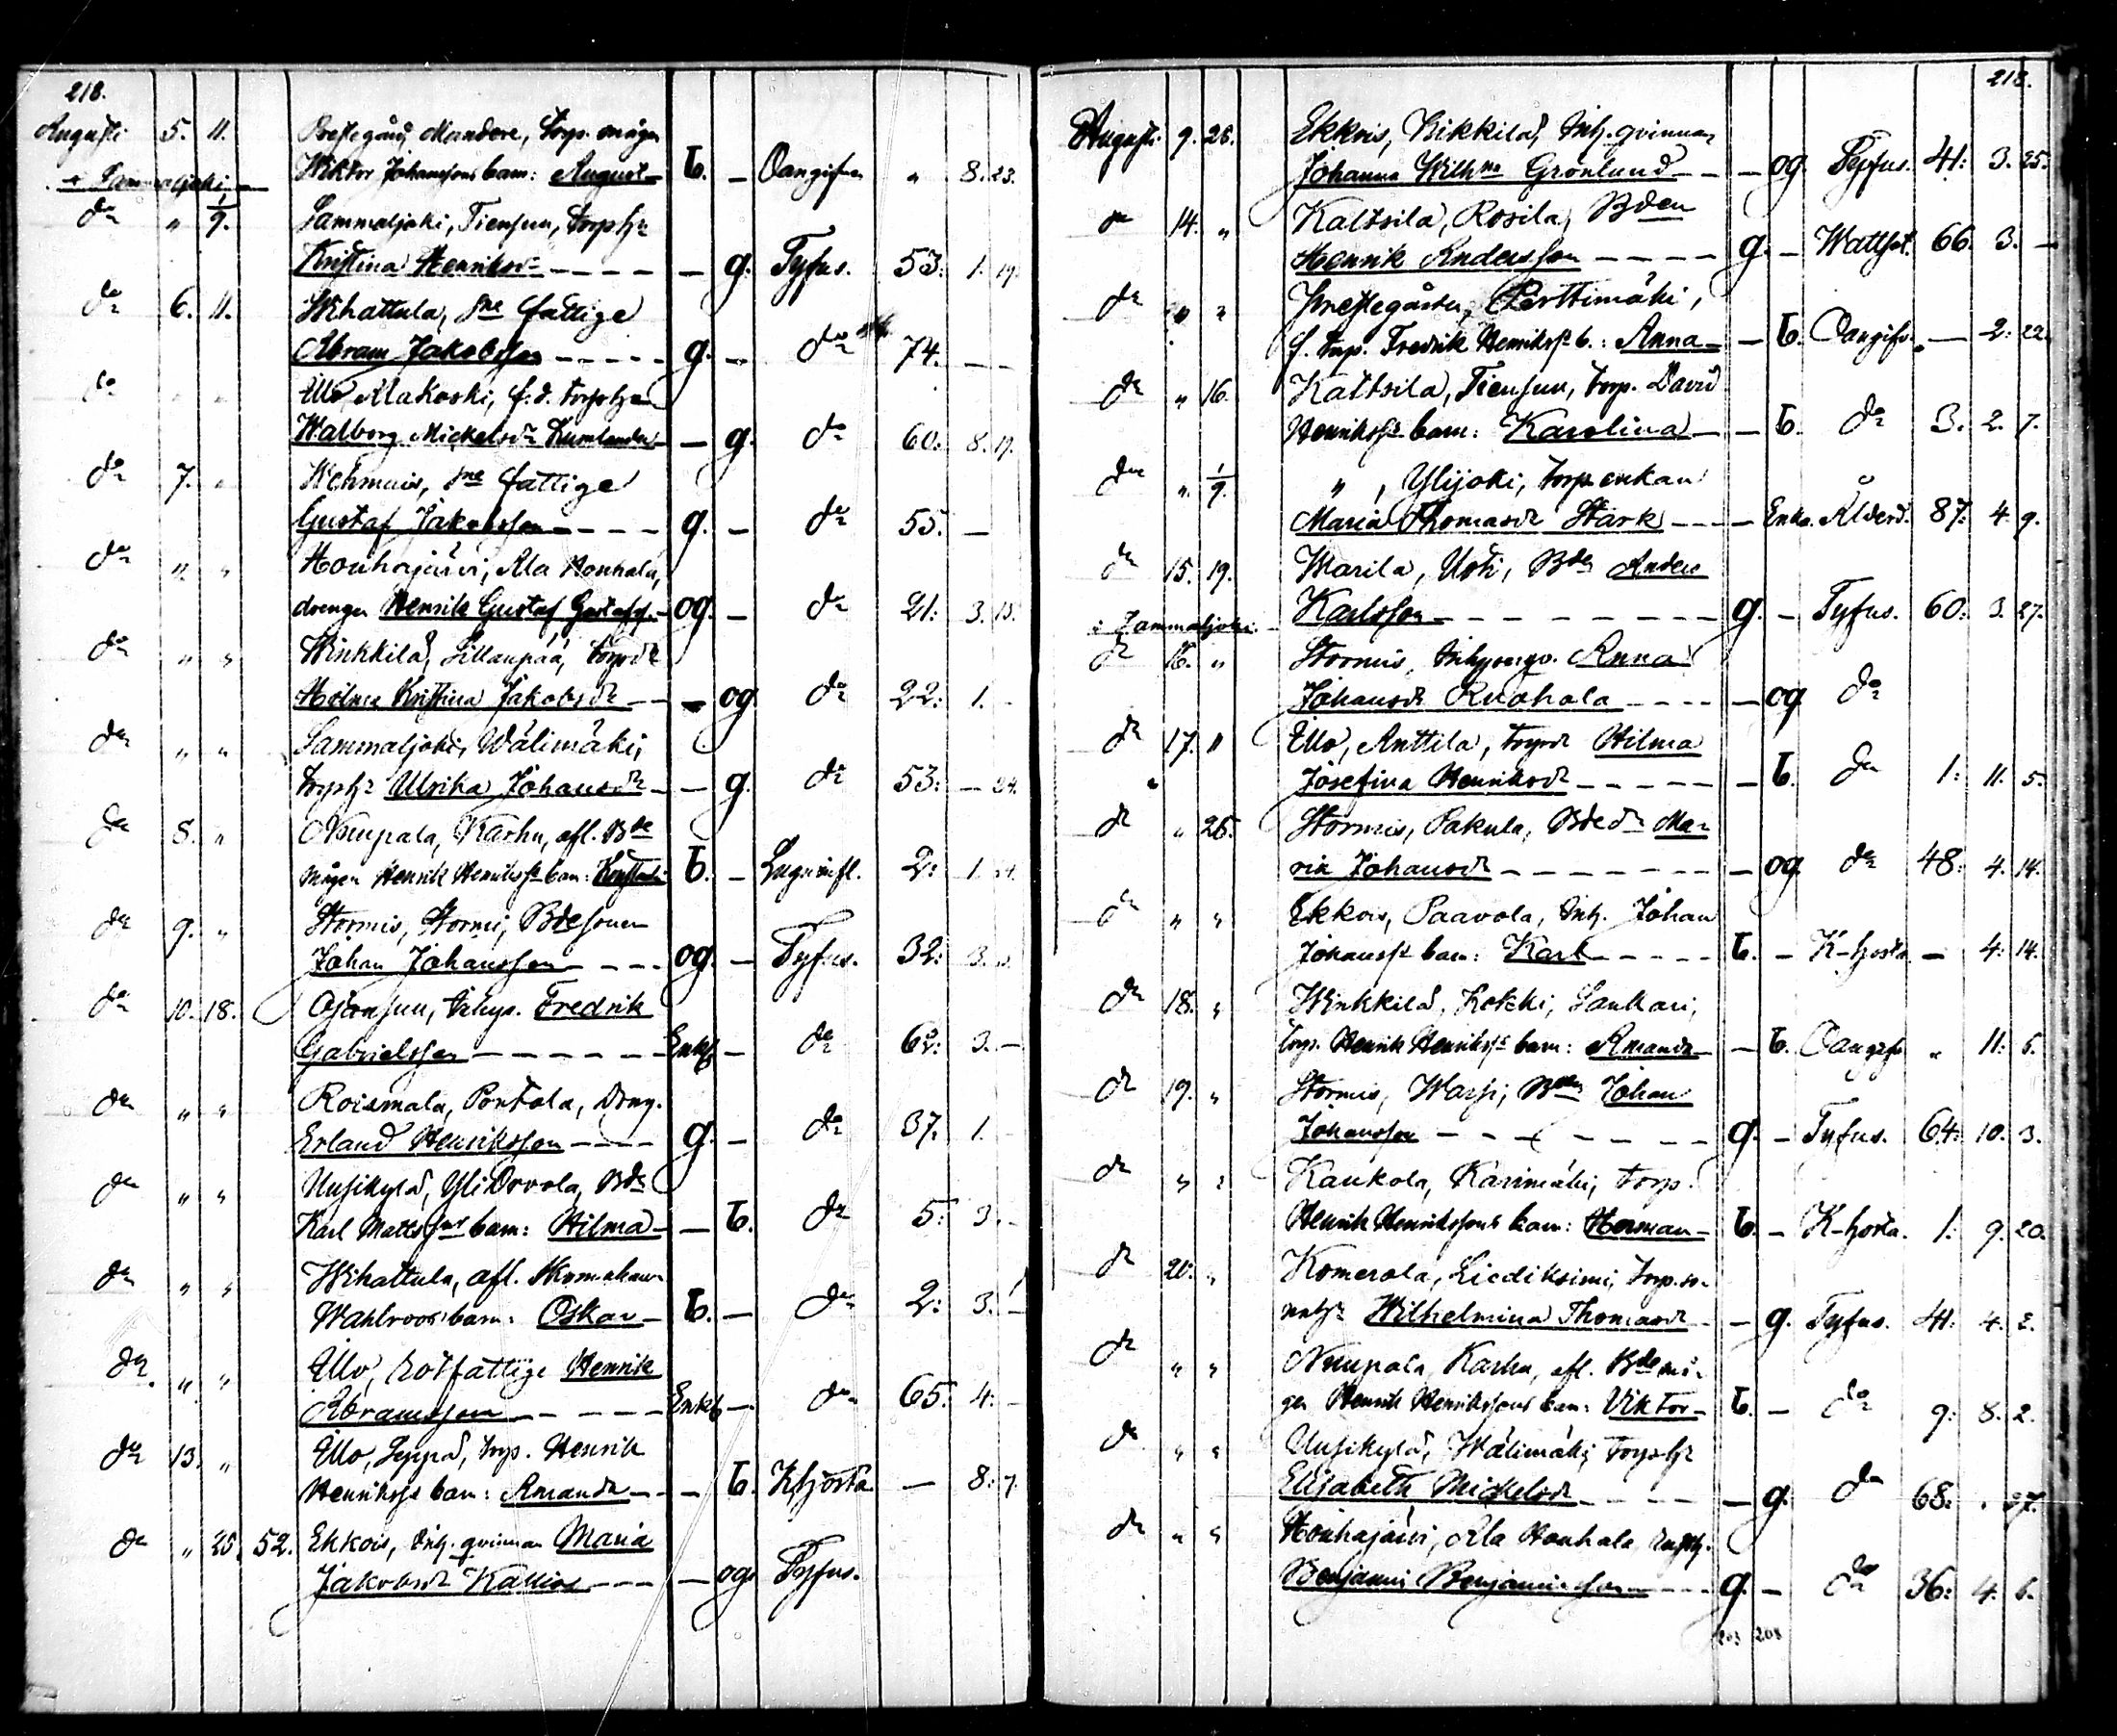 218.
Augusti 5. 11. Prestegård, Mandere, Torp. mågen
i Sammaljoki Wiktor Johanssons barn: August b. — Oangifven " 8. 23.
do " 1/9. Sammaljoki, Tiensuu, torphu
Kristina Henriksdr — g. Tyfus. 53. 1. 19.
do 6. 11. Wihattula, sne fattige
Abram Jakobsson g. — do 74. —
do " " Illo, Alakoski, f.d. torphu
Walborg Mickelsdr Kumlander — g. do 60. 8. 19.
do 7. " Wehmais, sne fattige
Gustaf Jakobsson g. — do 55. —
do " " Houhajärvi, Ala Houhala,
drengen Henrik Gustaf Gustafss. og. — do 21: 3. 15.
do " " Winkkilä, Sillanpää, torpdr
Helma Kristina Jakobsdr — og do 22: 1. —
do " " Sammaljoki, Wälimäki,
torphu Ulrika Johansdr — g. do 53: — 24.
do 8. " Nuupala, Karhu, afl. Bde
mågen Henrik Henrikss barn: Konstantin b. — Luginfl. 2: 1.
do 9. " Stormis, Stormi, Bdesonen
Johan Johansson og. — Tyfus. 32: 3.
do 10. 18. Ojansuu, Inhys. Fredrik
Gabrielsson Enkl — do 62: 3. —
do " " Roismala, Pontola, Dreng.
Erland Henriksson g. — do 37. 1.
do " " Uusikylä, Yli Dovola, Bdr
Karl Mattssons barn: Hilma — b. do 5. 3. —
do " " Wihattula, afl. Skomakaren
Wahlroos barn: Oskar b. — do 2: 3. —
do " " Illo, rotfattige Henrik
Abramsson Enkl — do 65. 4. —
do 13. " Illo, Seppä, torp. Henrik
Henrikss barn: Amanda — b. Khosta — 8. 7.
do " 25. 52. Ekkois, Inh. qvinnan Maria
Jakobsdr Kallio — og. Tyfus.
218.
Augusti 9. 26. Ekkois, Kikkilä, Inh. qvinnan
Johanna Wilhna Grönlund — og. Tyfus. 41: 3. 25.
do 14. " Kaltsila, Rosila, Bden
Henrik Andersson g. — Wattsot. 66. 3. —
do " " Prestegården, Perttimäki,
f. torp. Fredrik Henrikss b.: Anna — b. Oangifv. — 2: 22.
do " 16. Kaltsila, Tiensuu, torp. David
Henrikss barn: Karolina — b. do 3. 2. 7.
do " 1/9. " , Ylijoki, torp enkan
Maria Thomasdr Stark — Enka. Ålderd. 87. 4. 9.
do 15. 19. Marila, Uoti, Bden Anders
i Sammaljoki. Karlsson g. — Tyfus. 60: 3. 27.
do 16. " Stormis, Inhysesqv. Anna
Johansdr Ruohola — og do
do 17. " Illo, Anttila, torpdr Hilma
Josefina Henriksdr — b. do 1: 11. 5.
do " 26. Stormis, Pakula, Bdedr Ma-
ria Johansdr — og. do 48: 4. 14.
do " " Ekkois, Paavola, Inh. Johan
Johanss barn: Karl b. — K-hosta — 4: 14.
do 18. " Winkkilä, Kotzki, Sankari,
torp. Henrik Henrikss barn: Amanda — b. Oangifv " 11: 6.
do 19. " Stormis, Warsi, Bden Johan
Johansson g. — Tyfus. 64: 10. 3.
do " " Kaukola, Karimäki, torp.
Henrik Henrikssons barn: Herman b. — K-hosta. 1. 9. 20.
do 20. " Komerola, Liediksimi, torp.so-
nehu Wilhelmina Thomasdr — g. Tyfus. 41. 4. 2.
do " " Nuupala, Karhu, afl. Bde må-
gen Henrik Henrikssons barn: Viktor b. — do 9: 8. 2.
do " " Uusikylä, Wälimäki, torphu
Elisabeth Mickelsdr — g. do 68. . 27.
do " " Houhajärvi, Ala Houhala
Benjamin Benjaminsson g. — do 36: 4. 6.
203 208